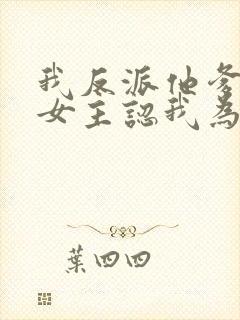 我反派他爹
女主認我為
葉四四